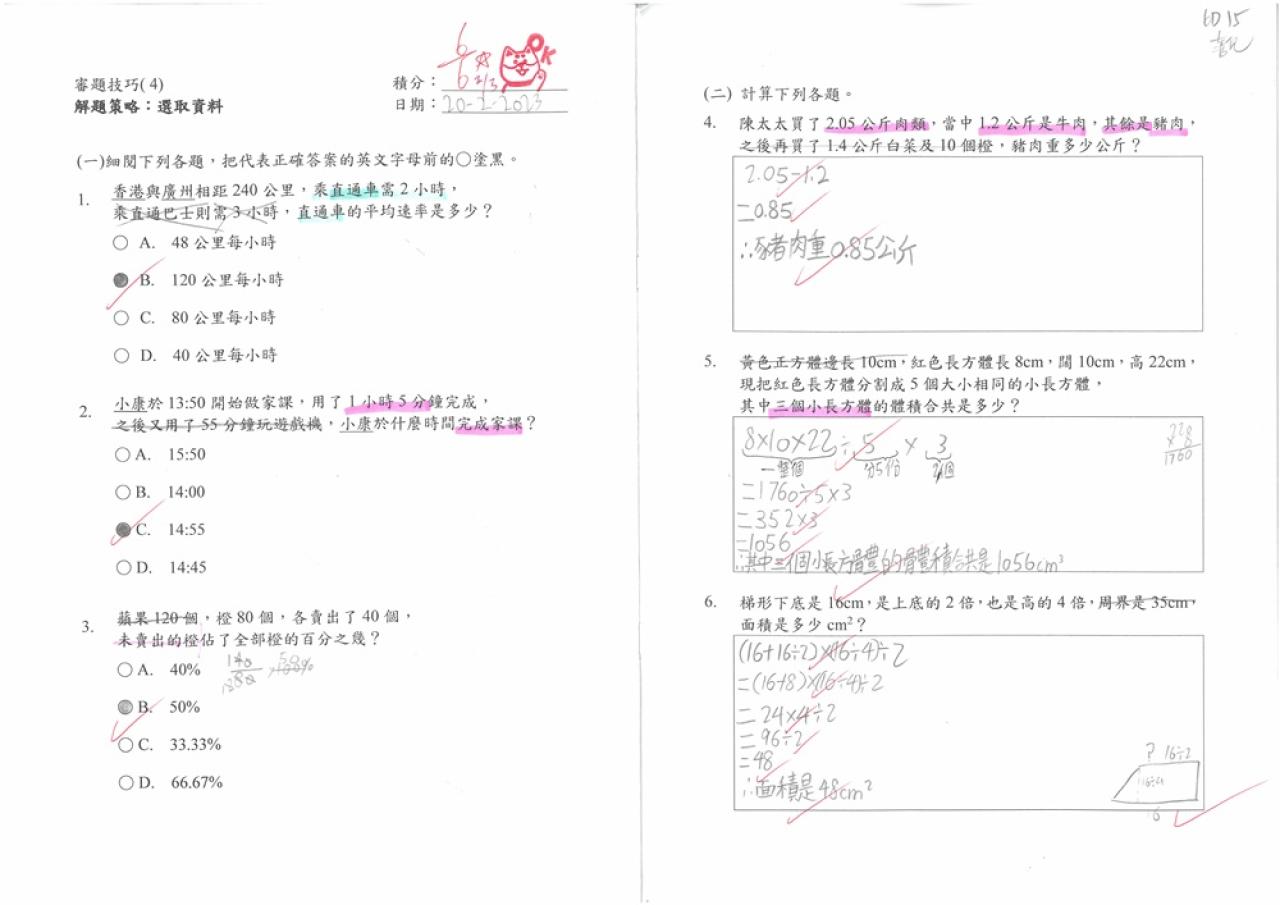 審題技巧(4)
解題策略：選取資料
積分：6/6
2/3
OK
日期：20-2-2023
(一)細閱下列各題，把代表正確答案的英文字母前的○塗黑。
1. 香港與廣州相距 240 公里，乘直通車需 2 小時，
乘直通巴士則需 3 小時，直通車的平均速率是多少？
A. 48 公里每小時
B. 120 公里每小時
C. 80 公里每小時
D. 40 公里每小時
2. 小康於 13:50 開始做家課，用了 1 小時 5 分鐘完成，
之後又用了 55 分鐘玩遊戲機，小康於什麼時間完成家課？
A. 15:50
B. 14:00
C. 14:55
D. 14:45
3. 蘋果 120 個，橙 80 個，各賣出了 40 個，
未賣出的橙佔了全部橙的百分之幾？
A. 40%
B. 50%
C. 33.33%
D. 66.67%
6D 15
(二) 計算下列各題。
4. 陳太太買了 2.05 公斤肉類，當中 1.2 公斤是牛肉，其餘是豬肉，
之後再買了 1.4 公斤白菜及 10 個橙，豬肉重多少公斤？
2.05-1.2
=0.85
∴豬肉重0.85公斤
5. 黃色正方體邊長 10cm，紅色長方體長 8cm，闊 10cm，高 22cm，
現把紅色長方體分割成 5 個大小相同的小長方體，
其中三個小長方體的體積合共是多少？
8×10×22÷5×3
一整個 分5份
=1760÷5×3
=352×3
=1056
∴其中三個小長方體的體積合共是1056cm³
228
×8
1760
6. 梯形下底是 16cm，是上底的 2 倍，也是高的 4 倍，周界是 35cm，
面積是多少 cm²？
(16+16÷2)×(16÷4)÷2
=(16+8)×(16÷4)÷2
=24×4÷2
=96÷2
=48
∴面積是48cm²
? 16÷2
16÷4
16